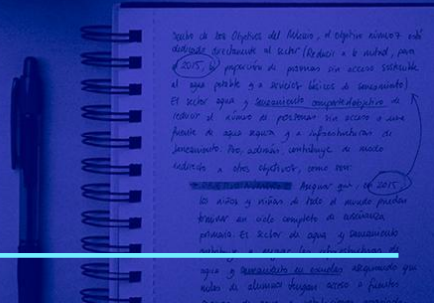 Dentro de los Objetivos del Milenio, el objetivo número 7 está
dedicado directamente al sector (Reducir a la mitad, para
el 2015, la proporción de personas sin acceso sostenible
al agua potable y a servicios básicos de saneamiento).
El sector agua y saneamiento comparte el objetivo de
reducir el número de personas sin acceso a una
fuente de agua segura y a infraestructuras de
saneamiento. Pero, además, contribuye de modo
indirecto a otros objetivos, como son:
Asegurar que, en 2015,
los niños y niñas de todo el mundo puedan
terminar un ciclo completo de enseñanza
primaria. El sector de agua y saneamiento
a las infraestructuras de
agua y saneamiento en escuelas asegurando que
alumnos tengan acceso a fuentes